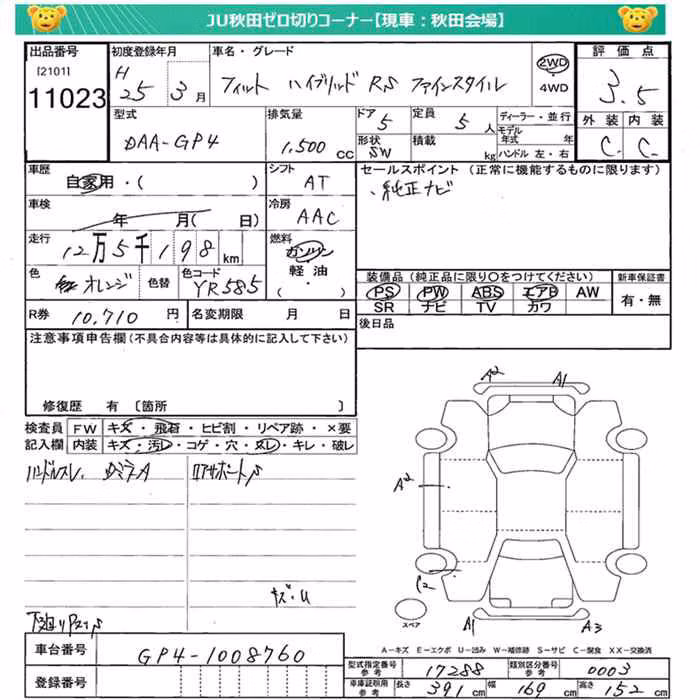 JU秋田ゼロ切りコーナー【現車：秋田会場】
出品番号
[2101]
11023
初度登録年月
H 25 年 3 月
車名・グレード
フィット ハイブリッド RS ファインスタイル
2WD
4WD
評価点
3.5
外装 内装
C. C.
型式
DAA-GP4
排気量
1,500 CC
ドア 5
形状 SW
定員 5 人
積載 kg
ディーラー・並行
モデル年式 年
ハンドル 左・右
車歴
自家用・( )
シフト
AT
車検
年 月( 日)
冷房
AAC
走行
12万5千198 km
燃料
ガソリン
軽油
( )
色
オレンジ
色替
色コード
YR585
R券 10,710 円
名変期限 月 日
セールスポイント (正常に機能するものに限ります)
、純正ナビ
装備品 (純正品に限り○をつけてください)
PS PW ABS エアB AW
SR ナビ TV カワ
新車保証書
有・無
後日品
注意事項申告欄 (不具合内容等は具体的に記入して下さい)
修復歴 有 〔箇所 〕
検査員記入欄
FW キズ・飛石・ヒビ割・リペア跡・×要
内装 キズ・汚レ・コゲ・穴・スレ・キレ・破レ
ハンドルスレ、
キズ・U
A2 A1
A2
A1 A3
スペア
A-キズ E-エクボ U-凹み W-補修跡 S-サビ C-腐食 XX-交換済
車台番号 GP4-1008760
登録番号
型式指定番号 参考 17288
類別区分番号 参考 0003
車庫証明用 参考 長さ 391 cm 幅 169 cm 高さ 152 cm